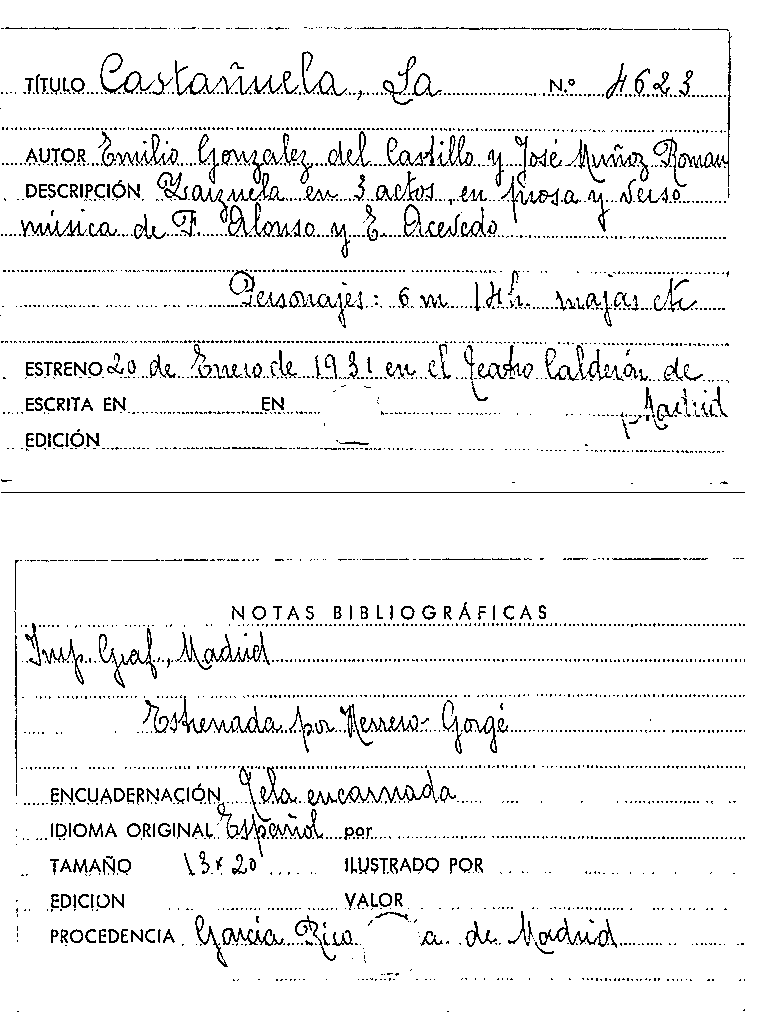 TÍTULO Castañuela, La N.º 4623
AUTOR Emilio Gonzalez del Castillo y José Muñoz Roman
DESCRIPCIÓN Zarzuela en 3 actos, en prosa y verso
música de F. Alonso y E. Acevedo
Personajes: 6 m 14 h. majas etc
ESTRENO 20 de Enero de 1931 en el Teatro Calderón de
ESCRITA EN EN Madrid
EDICIÓN
NOTAS BIBLIOGRÁFICAS
Imp. Graf., Madrid
Estrenada por Herrero-Gorgé
ENCUADERNACIÓN Tela encarnada
IDIOMA ORIGINAL Español por
TAMAÑO 13 x 20 ILUSTRADO POR
EDICION VALOR
PROCEDENCIA García Rico a. de Madrid